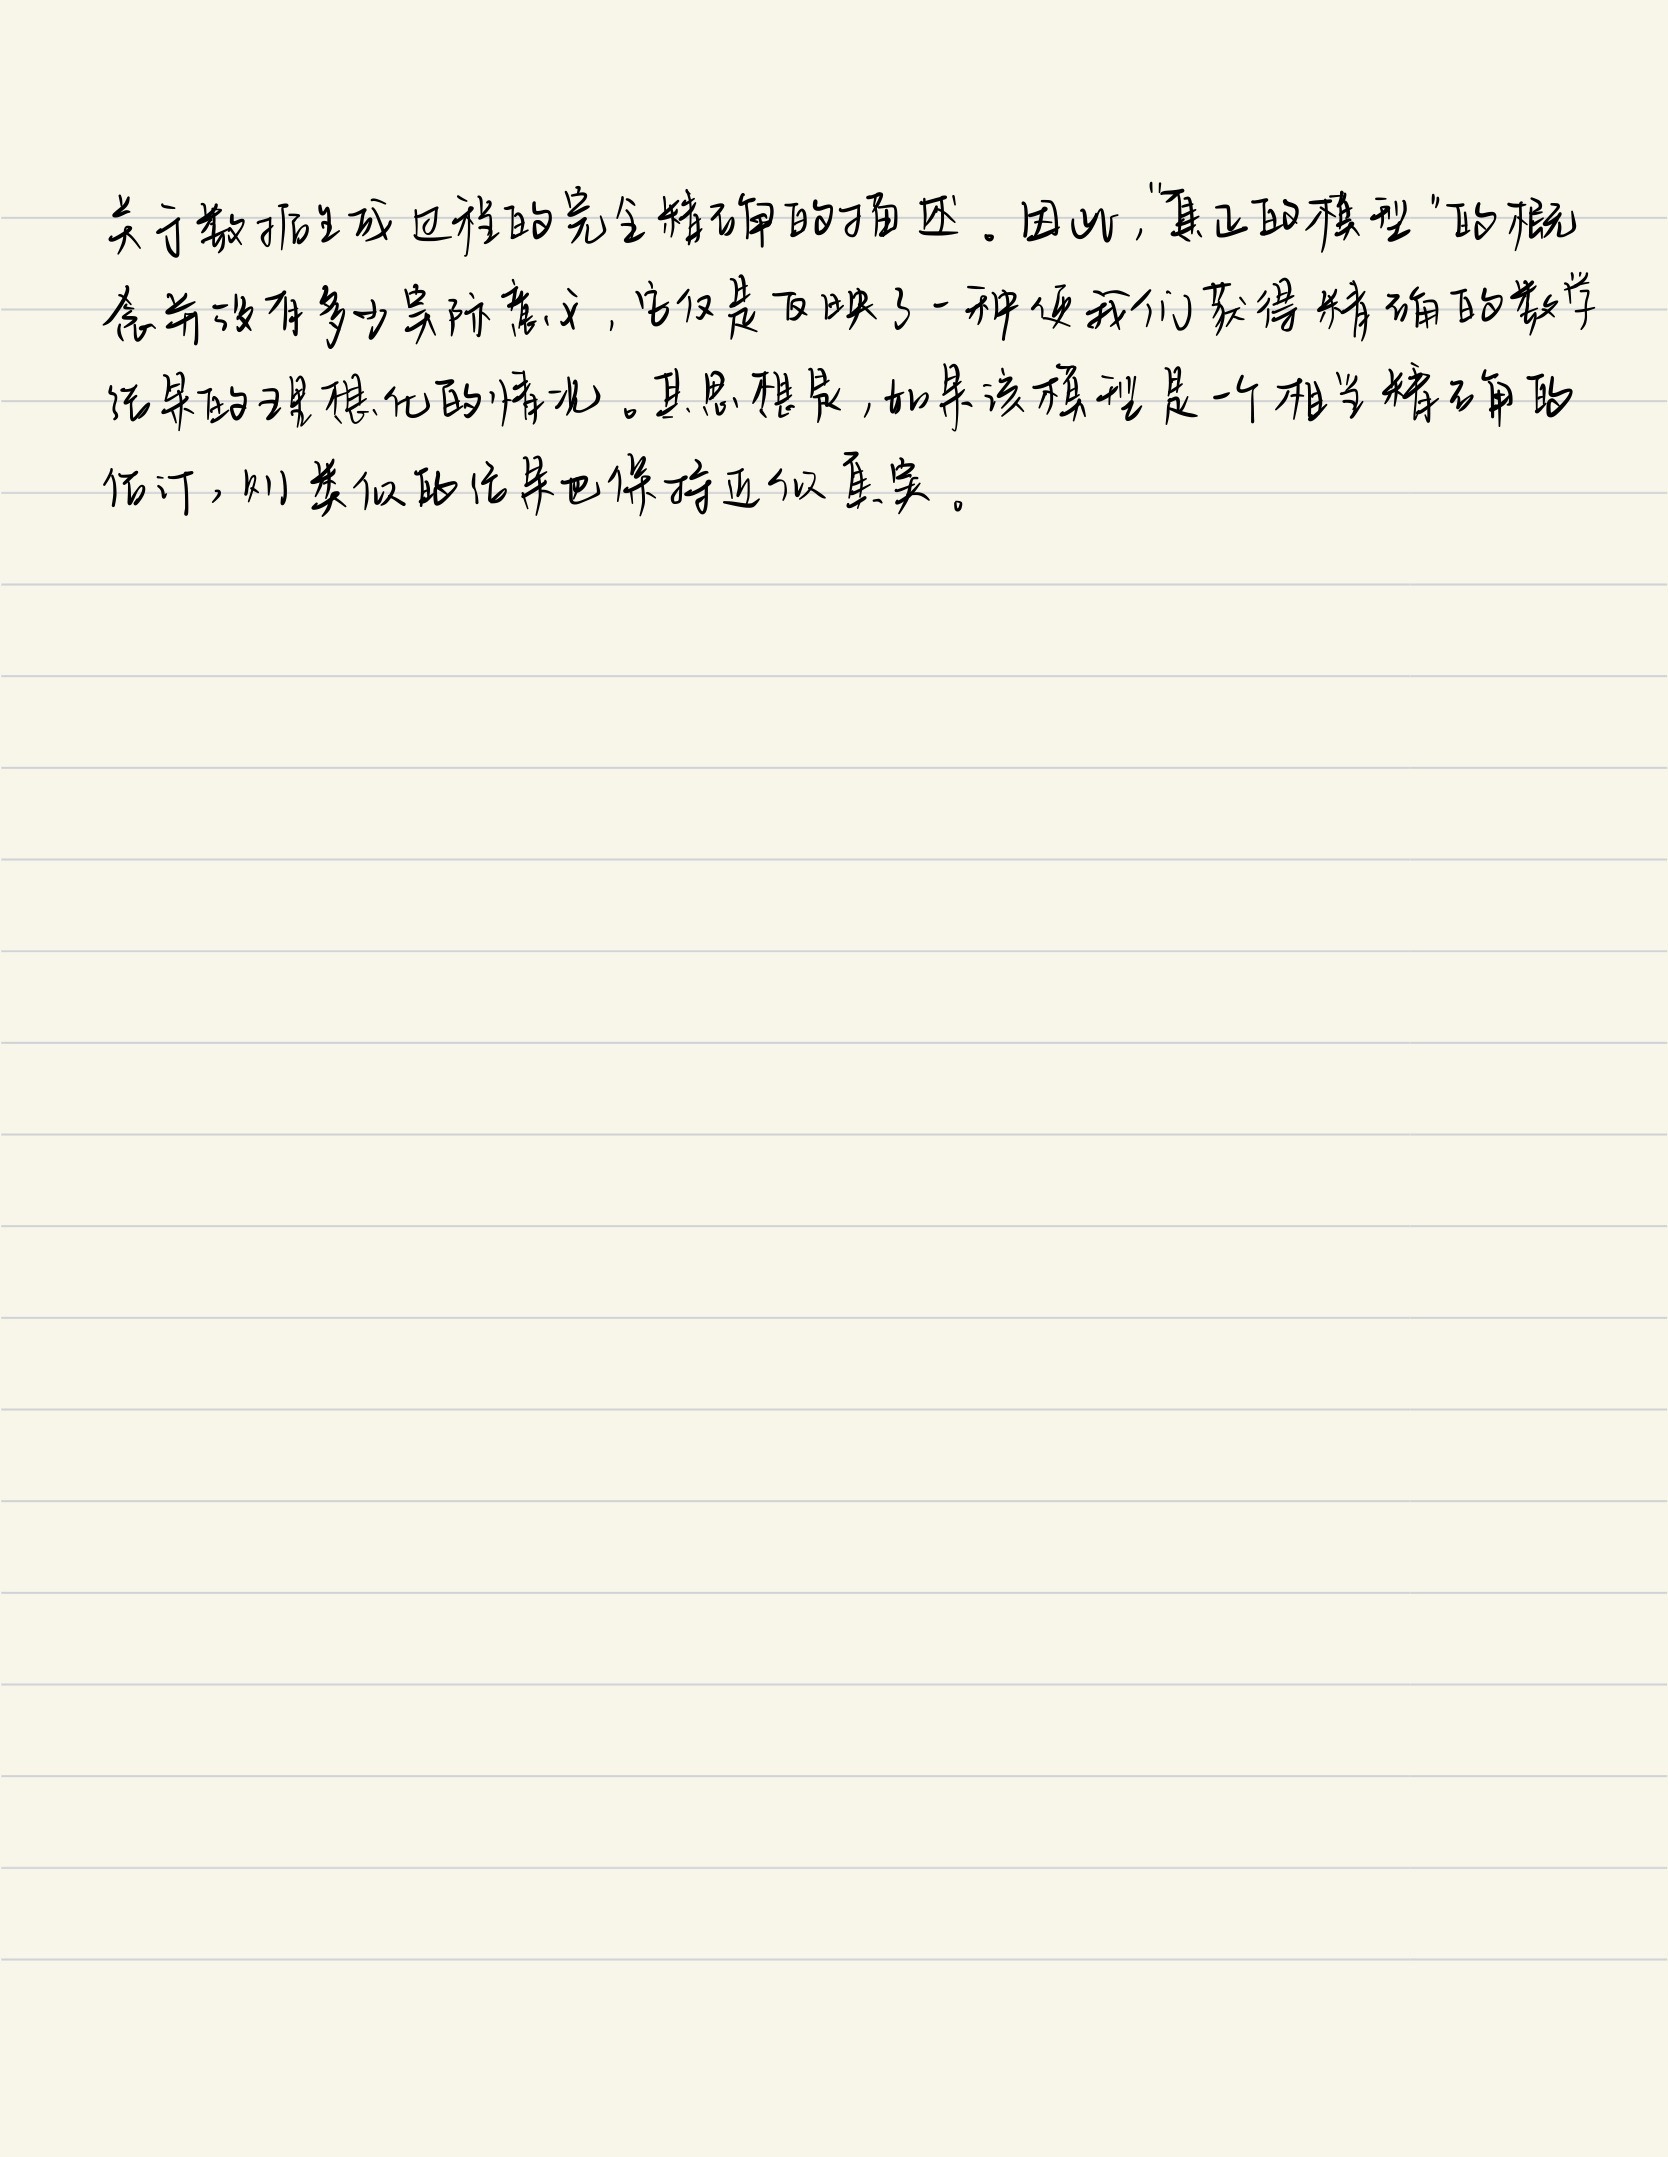 关于数据生成过程的完全精确的描述。因此，“真正的模型”的概
念并没有多少实际意义，它仅是反映了一种使我们获得精确的数学
结果的理想化的情况。其思想是，如果该模型是一个相当精确的
估计，则类似的结果也保持近似真实。